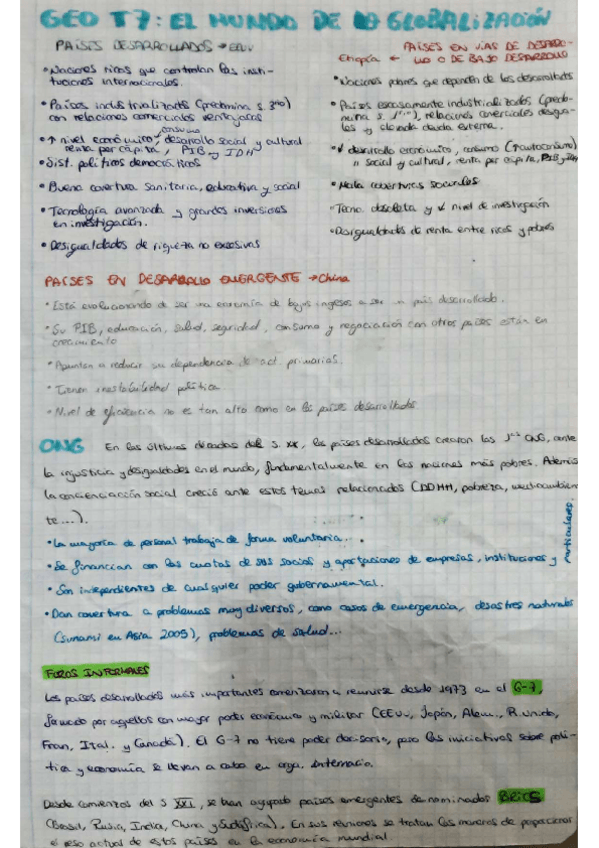 GEO T7: EL MUNDO DE LA GLOBALIZACIÓN
PAÍSES DESARROLLADOS → EEUU
• Naciones ricas que controlan las insti-
tuciones internacionales.
• Países industrializados (predomina s. 3ario)
con relaciones comerciales ventajosas
consumo
• ↑ nivel económico, desarrollo social y cultural
renta per cápita, PIB y IDH
• Sist. políticos democráticos
• Buena covertura sanitaria, educativa y social
• Tecnología avanzada y grandes inversiones
en investigación.
• Desigualdades de riqueza no excesivas
PAÍSES EN VÍAS DE DESARRO-
Etiopía ← LLO O DE BAJO DESARROLLO
• Naciones pobres que dependen de los desarrollados
• Países escasamente industrializados (predo-
mina s. 1ario), relaciones comerciales desigua-
les y elevada deuda externa.
• ↓ desarrollo económico, consumo (↑autoconsumo)
" social y cultural, renta per cápita, PIB y IDH
• Mala coberturas sociales
• Tecno. obsoleta y ↓ nivel de investigación
• Desigualdades de renta entre ricos y pobres
PAÍSES EN DESARROLLO EMERGENTE → China
• Está evolucionando de ser una economía de bajos ingresos a ser un país desarrollado.
• Su PIB, educación, salud, seguridad, consumo y negociación con otros países están en
crecimiento
• Apuntan a reducir su dependencia de act. primarias.
• Tienen inestabilidad política.
• Nivel de eficiencia no es tan alto como en los países desarrollados
ONG En las últimas décadas del s. XX, los países desarrollados crearon las 1as ONG, ante
la injusticia y desigualdades en el mundo, fundamentalmente en las naciones más pobres. Además
la concienciación social creció ante estos temas relacionados (DDHH, pobreza, medioambien
te...).
• La mayoría de personal trabaja de forma voluntaria.
• Se financian con las cuotas de sus socios y aportaciones de empresas, instituciones y particulares.
• Son independientes de cualquier poder gubernamental.
• Dan covertura a problemas muy diversos, como casos de emergencia, desastres naturales
(sunami en Asia 2005), problemas de salud...
FOROS INFORMALES
Los países desarrollados más importantes comenzaron a reunirse desde 1973 en el G-7,
formado por aquellos con mayor poder económico y militar (EEUU, Japón, Alem., R. Unido,
Fran, Ital. y Canadá). El G-7 no tiene poder decisorio, pero las iniciativas sobre polí-
tica y economía se llevan a cabo en orga. internacio.
Desde comienzos del s XXI, se han agrupado países emergentes denominados BRICS
(Brasil, Rusia, India, China y Sudáfrica). En sus reuniones se tratan las maneras de proporcionar
el peso actual de estos países en la economía mundial.